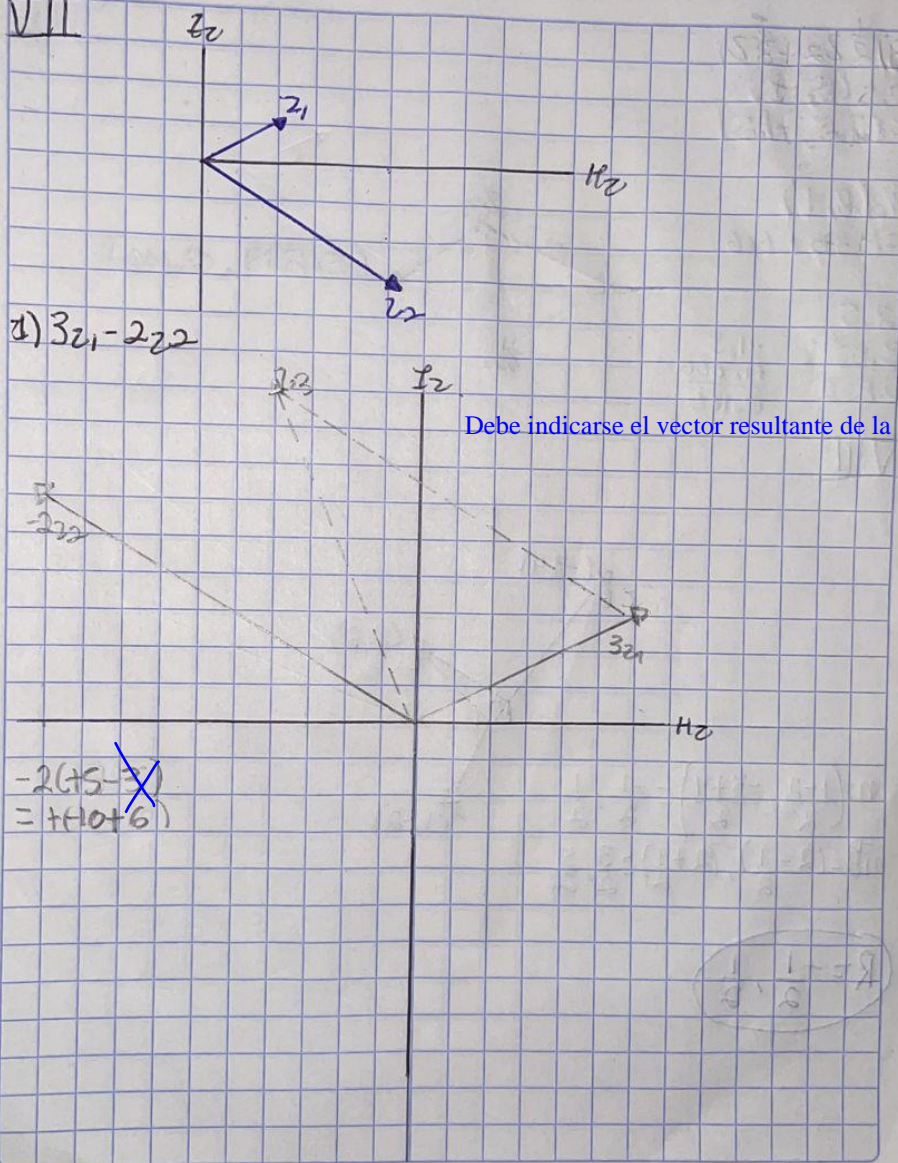 VII
Iz
z1
Hz
z2
1) 3z1-2z2
Iz
Debe indicarse el vector resultante de la
-2z2
3z1
Hz
-2(+5-3)
=+(-10+6)